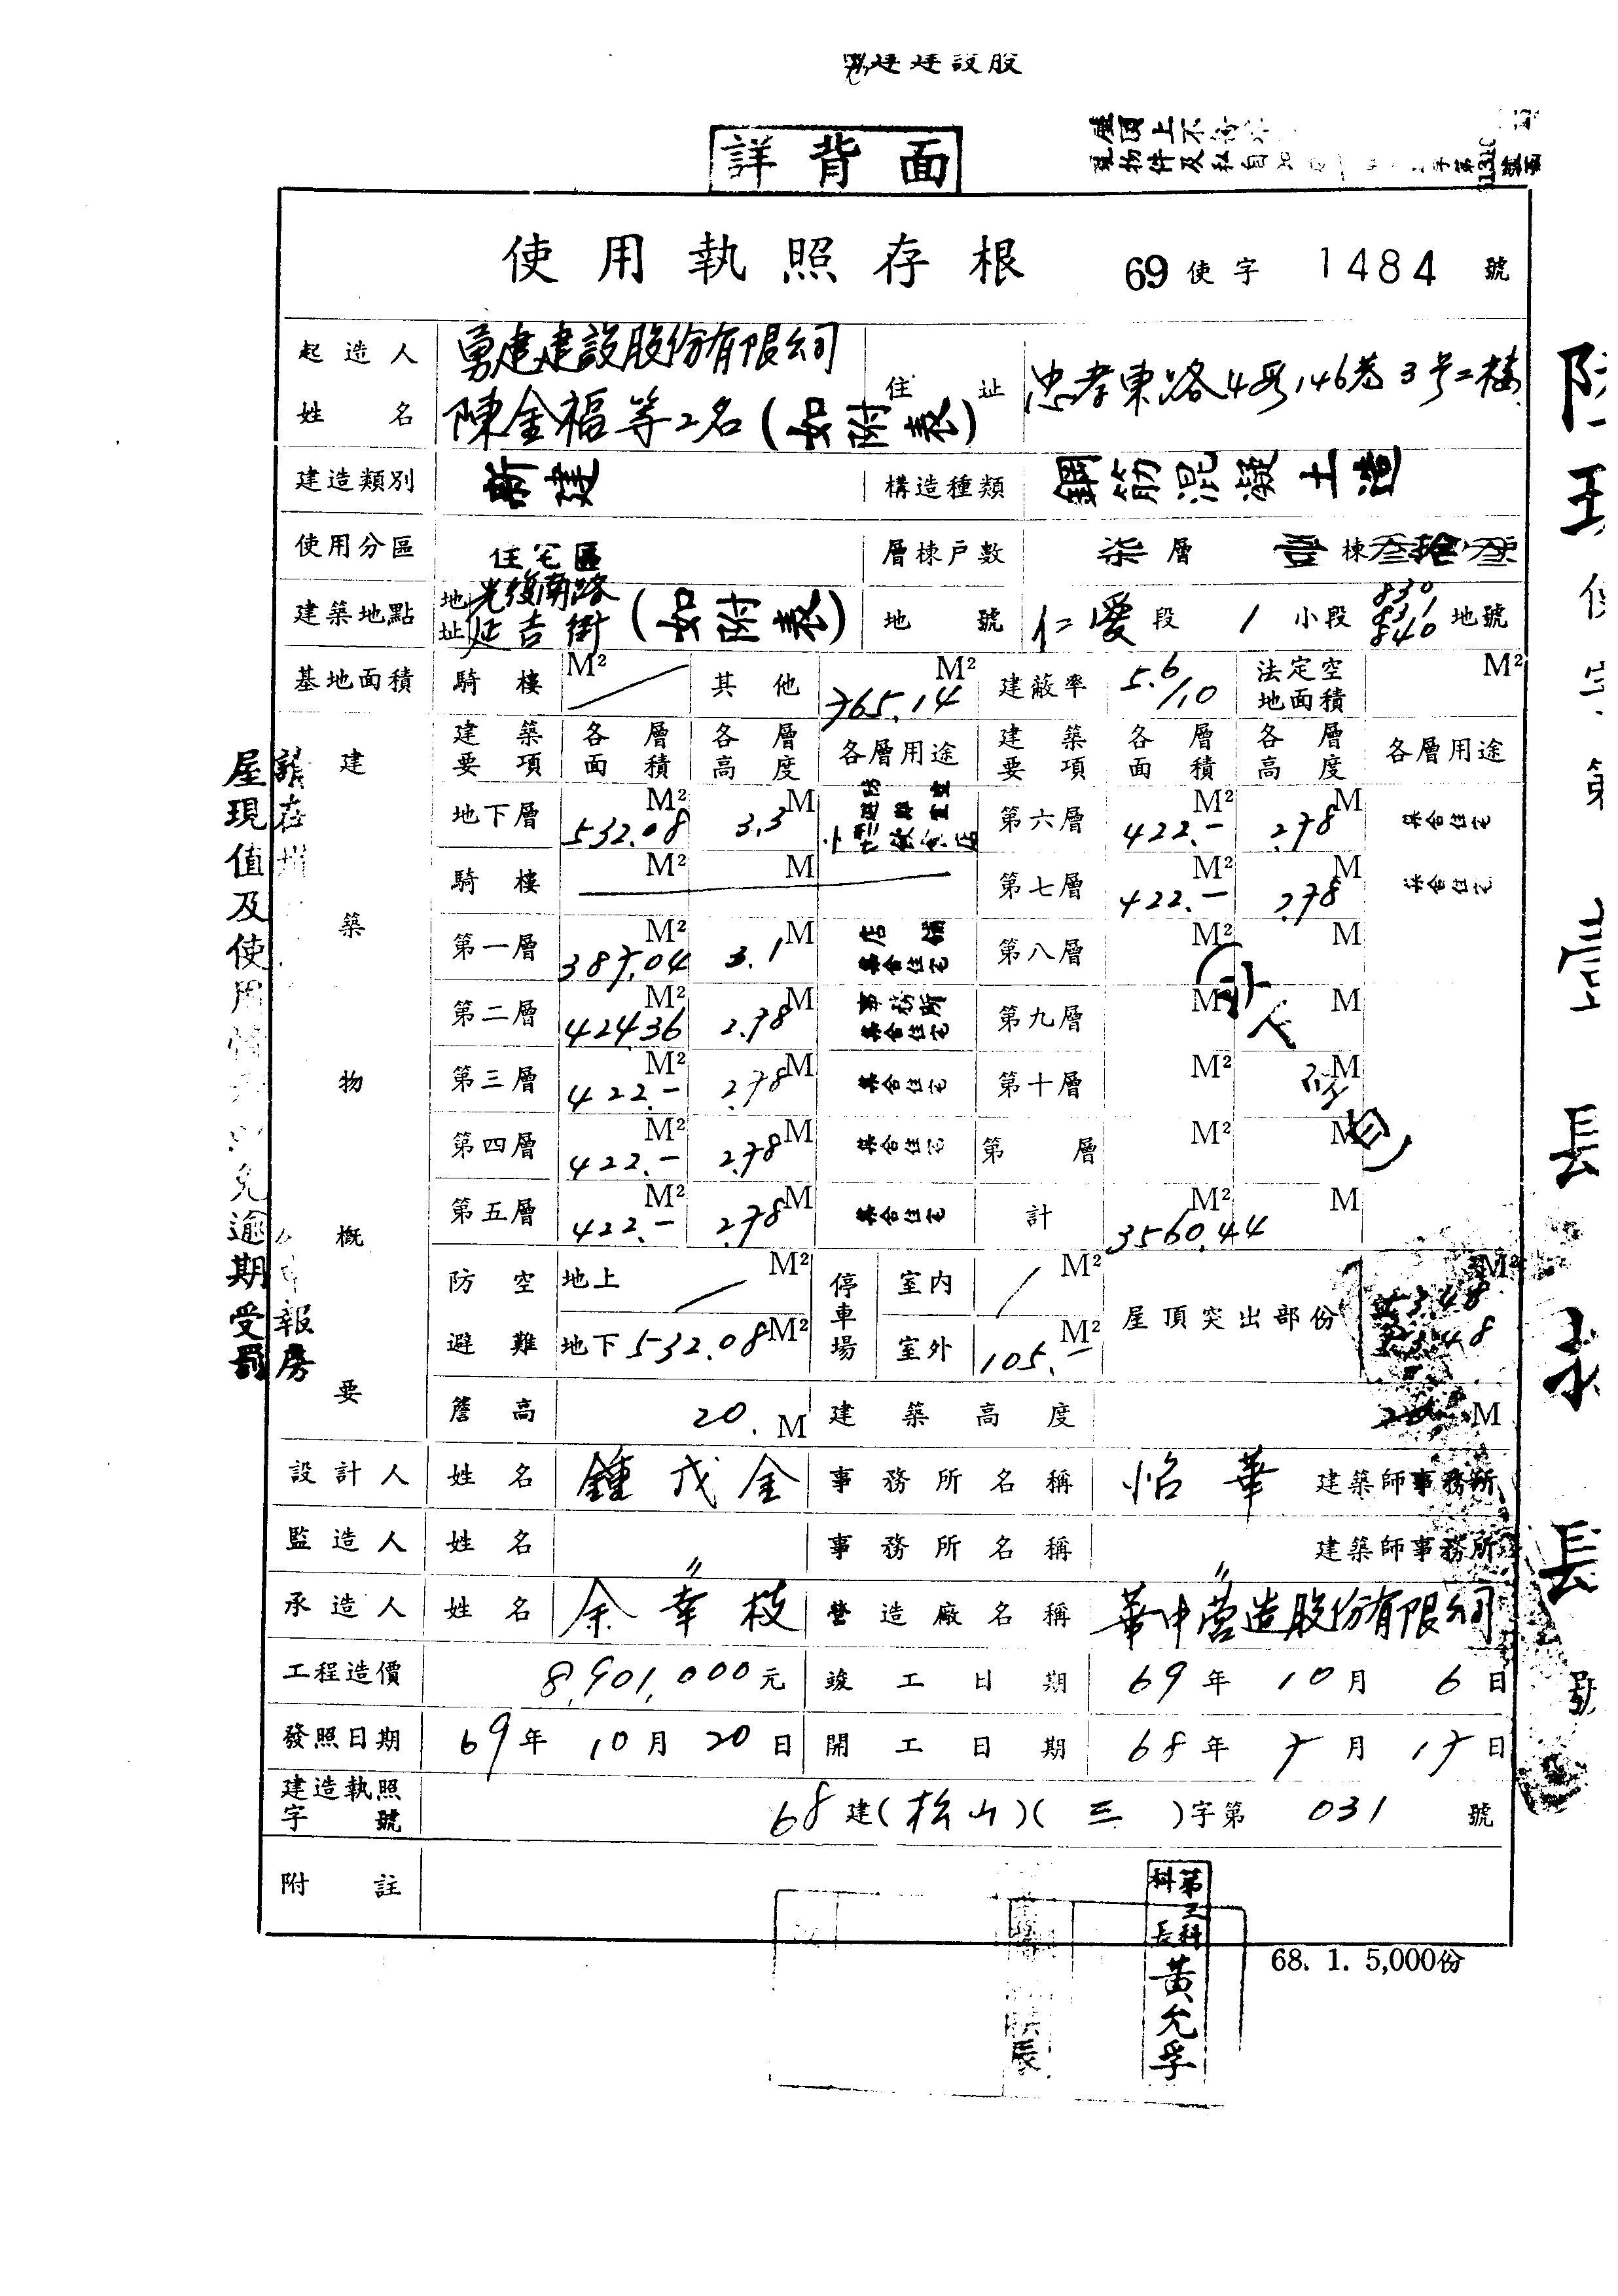 勇建建設股
詳背面
使用執照存根 69使字 1484 號
起造人姓名 勇建建設股份有限公司 陳金福等2名(如附表) 住址 忠孝東路4段146巷3号二樓
建造類別 新建 構造種類 鋼筋混凝土造
使用分區 住宅區 層棟戶數 柒層 壹棟
建築地點 地址 光復南路 延吉街(如附表) 地號 仁愛段 1 小段 830 831 840 地號
基地面積 騎樓 M² 其他 765.14 M² 建蔽率 5.6/10 法定空地面積 M²
建築物概要
建築要項 各層面積 各層高度 各層用途 建築要項 各層面積 各層高度 各層用途
地下層 532.08 M² 3.3 M 第六層 422.- M² 2.78 M 集合住宅
騎樓 M² M 第七層 422.- M² 2.78 M 集合住宅
第一層 387.04 M² 3.1 M 店舖 集合住宅 第八層 M² M
第二層 424.36 M² 2.78 M 事務所 集合住宅 第九層 M² M
第三層 422.- M² 2.78 M 集合住宅 第十層 M² M
第四層 422.- M² 2.78 M 集合住宅 第 層 M² M
第五層 422.- M² 2.78 M 集合住宅 計 3560.44 M² M
防空避難 地上 M² 停車場 室內 M² 屋頂突出部份 M²
地下 532.08 M² 室外 105.- M²
簷高 20. M 建築高度 M
設計人 姓名 鍾茂金 事務所名稱 怡華 建築師事務所
監造人 姓名 〃 事務所名稱 〃 建築師事務所
承造人 姓名 余幸枝 營造廠名稱 華中營造股份有限公司
工程造價 8,901,000元 竣工日期 69年10月6日
發照日期 69年10月20日 開工日期 68年7月17日
建造執照字號 68建(松山)(三)字第 031 號
附註
第三科科長 黃允孚
68. 1. 5,000份
屋現值及使用
逾期受罰
報房